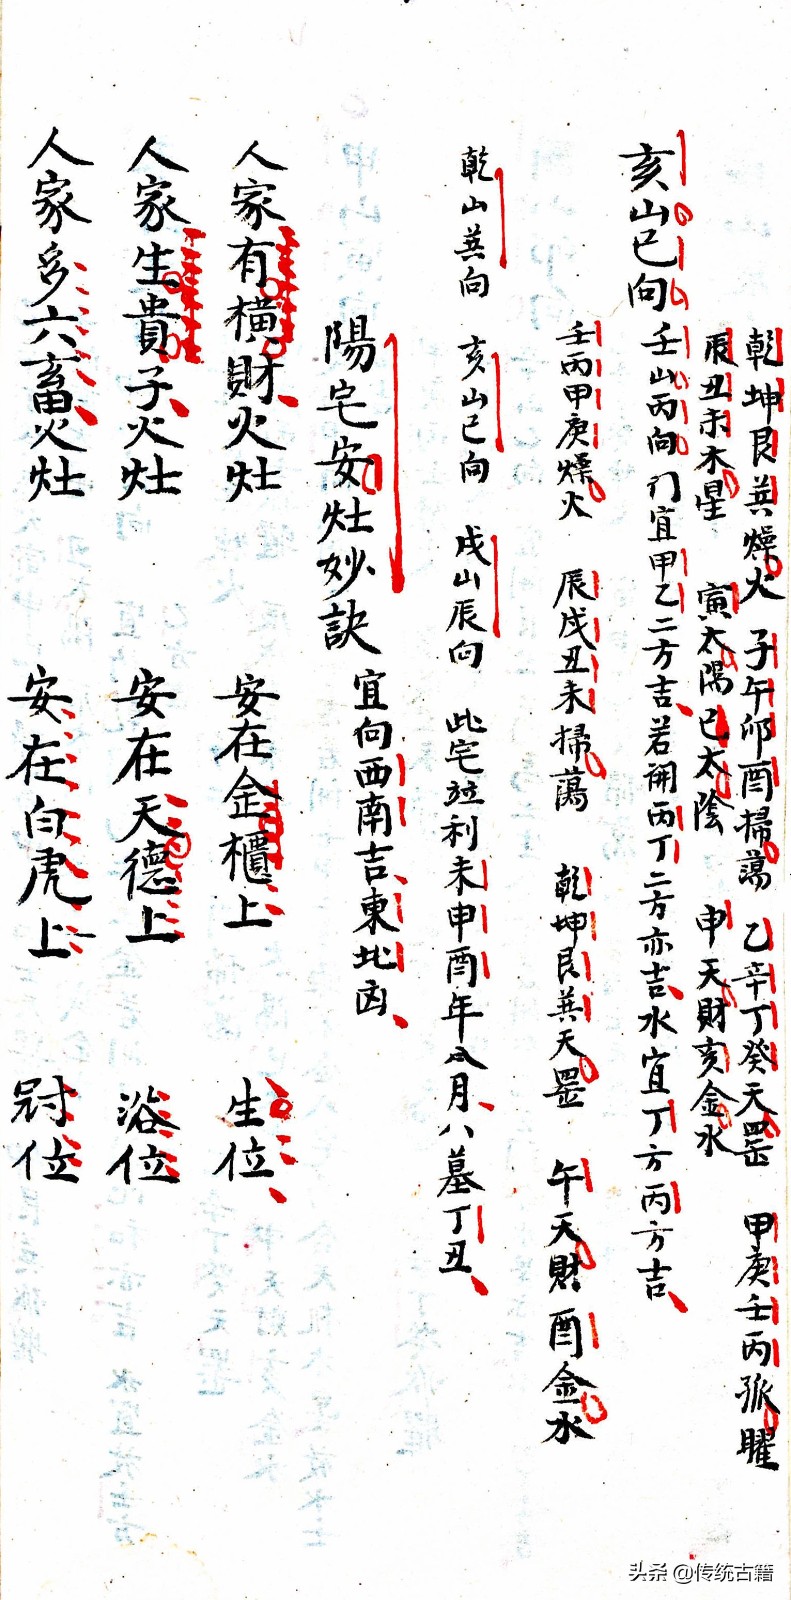 乾坤艮巽燥火 子午卯酉掃蕩 乙辛丁癸天罡 甲庚壬丙孤曜
辰丑未木星 寅太陽巳太陰 申天財亥金水
亥山巳向 壬山丙向 门宜甲乙二方吉若開丙丁二方亦吉水宜丁方丙方吉
壬丙甲庚燥火 辰戌丑未掃蕩 乾坤艮巽天罡 午天財 酉金水
乾山巽向 亥山巳向 戌山辰向 此宅竝利未申酉年 月八墓丁丑
陽宅安灶妙訣 宜向西南吉東北凶
人家有橫財火灶 安在金櫃上 生位
人家生貴子火灶 安在天德上 浴位
人家多六畜火灶 安在白虎上 冠位
头条 @传统古籍